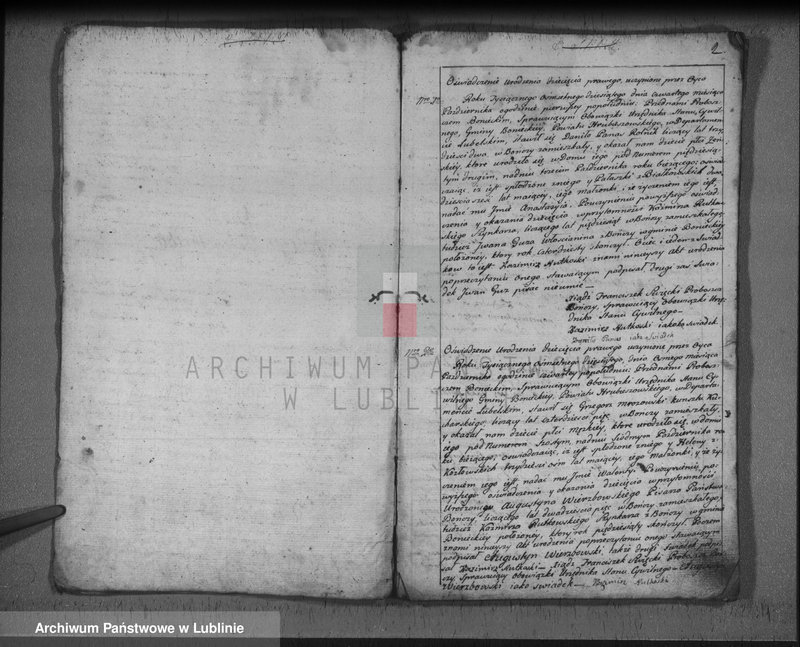 2
Oświadczenie Urodzenia dziecięcia prawego, uczynione przez Oyca
Roku Tysiącznego Osmsetnego dziesiątego dnia czwartego miesiąca
Października ogodzinie pierwszey popołudniu. Przednami Probosz-
czem Bonieckim, Sprawuiącym Obowiązki Urzędnika Stanu Cywil-
nego, Gminy Bonieckiey, Powiatu Hrubieszowskiego, w Departamen-
cie Lubelskim, stawił się Daniło Panas Rolnik liczący lat trzy-
dzieści dwa, w Bończy zamieszkały, y okazał nam dziecie płci żeń-
skiey, które urodziło się w domu iego pod Numerem pięćdziesią-
tym drugim, nadniu trzecim Października roku bieżącego; oświad-
czaiąc, iż iest spłodzone zniego y Pelaszki z Białkowskich dwa-
dzieścia sześć lat maiącey, iego małżonki, i że życzeniem iego iest,
nadać mu Imię Anastazyia. Pouczynieniu powyższego oświad-
czenia y okazania dziecięcia wprzytomności Kaźmirza Rutko-
skiego Szynkarza, liczącego lat pięćdziesiąt w Bończy zamieszkałego,
tudzież Iwana Guza Włościanina z Bończy wgminie Bonieckiey
położoney, który rok czterdziesty skończył. Oyciec i ieden z Świad-
ków to iest Kazimirz Rutkoski znami ninieyszy akt urodzenia
poprzeczytaniu onego stawaiącym podpisał drugi zaś Świa-
dek Iwan Guz pisać nieumie —
Xiądz Franciszek Skrzecki Proboszcz
Bończy, Sprawuiący Obowiązki Urzę-
dnika Stanu Cywilnego —
Kazimirz Rutkoski iakoto swiadek
Daniło Panas iako Swiadek
Oświadczenie Urodzenia dziecięcia prawego uczynione przez Oyca
Roku Tysiącznego Osmsetnego dziesiątego, dnia Osmego miesiąca
Października ogodzinie czwartey popołudniu. Przednami Probosz-
czem Bonieckim, Sprawuiącym Obowiązki Urzędnika Stanu Cy-
wilnego Gminy Bonieckiey, Powiatu Hrubieszowskiego, w Departa-
mencie Lubelskim, stawił się Grzegorz Morzowski kunsztu Ku-
charskiego, liczący lat czterdzieści pięć w Bończy zamieszkały,
y okazał nam dziecie płci męzkiey, które urodziło się w domu
iego pod Numerem Szostym, nadniu Siódmym Października ro-
ku bieżącego, oświadczaiąc, iż iest spłodzone zniego y Heleny z
Kozłowskich trzydzieści ośm lat maiącey, iego małżonki, y że ży-
czeniem iego iest nadać mu Imię Walenty. Pouczynieniu po-
wyższego oświadczenia y okazania dziecięcia w przytomności
Urodzonego Augustyna Wierzbowskiego Pisarza Państwa
Bończy, liczącego lat dwadzieścia pięć w Bończy zamieszkałego,
tudzież Kaźmirza Rutkowskiego Szynkarza z Bończy w gminie
Bonieckiey położoney, który rok pięćdziesiąty skończył. Poczem
znami ninieyszy Akt urodzenia poprzeczytaniu onego stawaiącym
podpisał Augustyn Wierzbowski, także drugi Swiadek
Kazimirz Rutkoski — Xiądz Franciszek Skrzecki Proboszcz Boń-
czy Sprawuiący obowiązki Urzędnika Stanu Cywilnego —
Wierzbowski iako swiadek — Kazimirz Rutkoski
ARCHIWUM PAŃSTWOWE
W LUBLINIE
Archiwum Państwowe w Lublinie